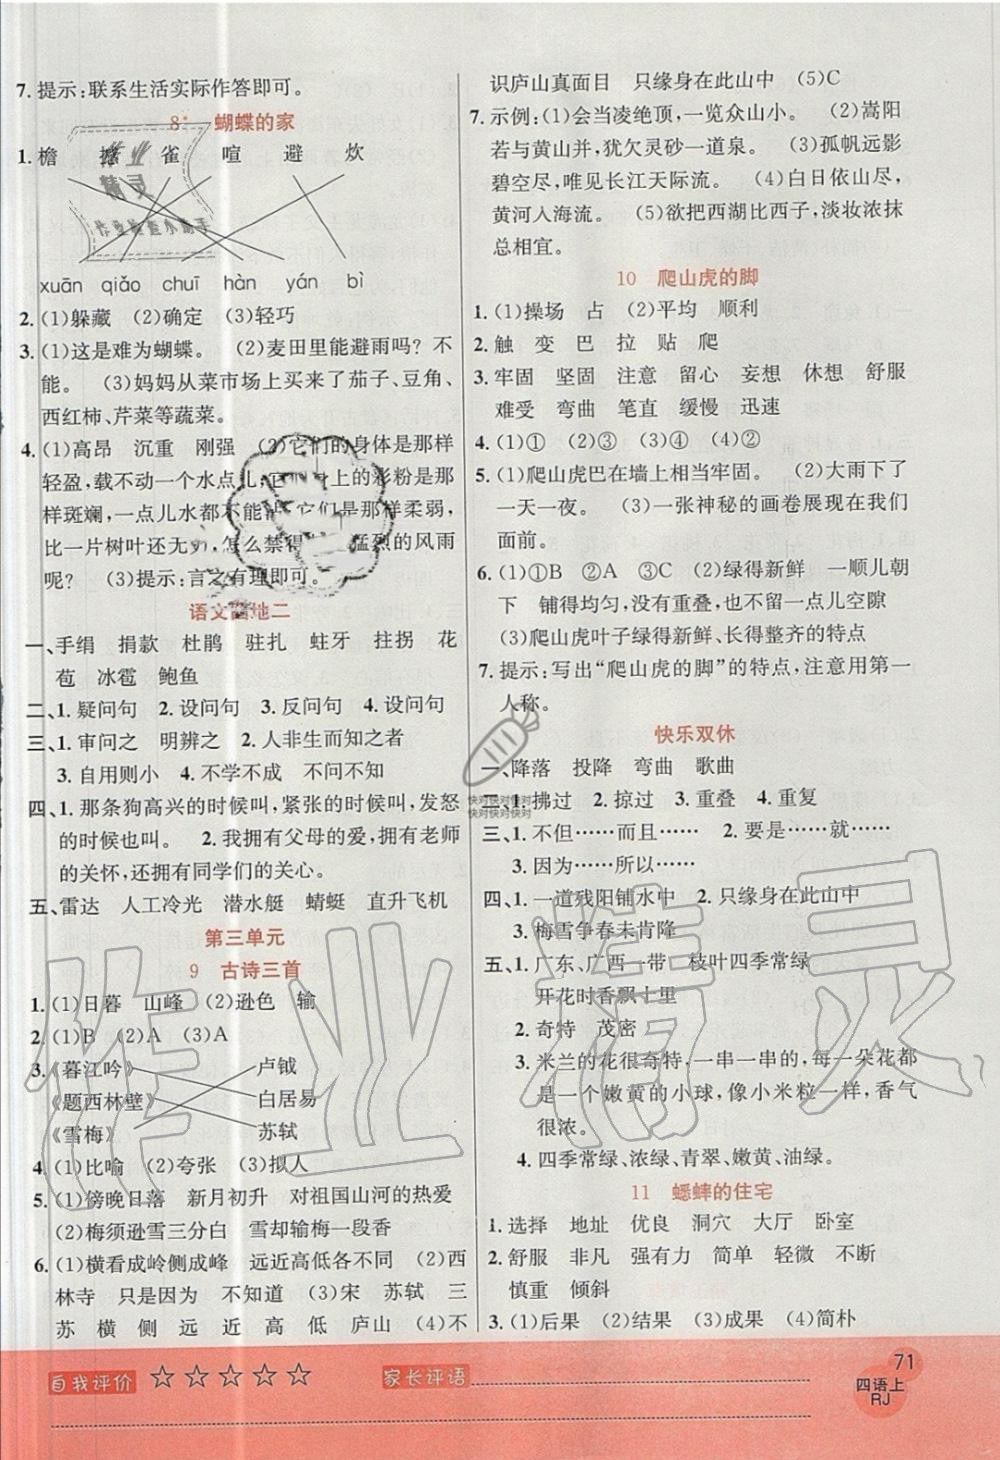 7. 提示:联系生活实际作答即可。
8* 蝴蝶的家
1. 檐 掩 雀 喧 避 炊
xuān qiǎo chuī hàn yán bì
2. (1)躲藏 (2)确定 (3)轻巧
3. (1)这是难为蝴蝶。 (2)麦田里能避雨吗? 不
能。 (3)妈妈从菜市场上买来了茄子、豆角、
西红柿、芹菜等蔬菜。
4. (1)高昂 沉重 刚强 (2)它们的身体是那样
轻盈,载不动一个水点儿;它们身上的彩粉是那
样斑斓,一点儿水都不能沾;它们是那样柔弱,
比一片树叶还无力,怎么禁得起这猛烈的风雨
呢? (3)提示:言之有理即可。
语文园地二
一、手绢 捐款 杜鹃 驻扎 蛀牙 拄拐 花
苞 冰雹 鲍鱼
二、1. 疑问句 2. 设问句 3. 反问句 4. 设问句
三、1. 审问之 明辨之 2. 人非生而知之者
3. 自用则小 4. 不学不成 不问不知
四、1. 那条狗高兴的时候叫,紧张的时候叫,发怒
的时候也叫。 2. 我拥有父母的爱,拥有老师
的关怀,还拥有同学们的关心。
五、雷达 人工冷光 潜水艇 蜻蜓 直升飞机
第三单元
9 古诗三首
1. (1)日暮 山峰 (2)逊色 输
2. (1)B (2)A (3)A
3. 《暮江吟》 卢钺
《题西林壁》 白居易
《雪梅》 苏轼
4. (1)比喻 (2)夸张 (3)拟人
5. (1)傍晚日落 新月初升 对祖国山河的热爱
(2)梅须逊雪三分白 雪却输梅一段香
6. (1)横看成岭侧成峰 远近高低各不同 (2)西
林寺 只是因为 不知道 (3)宋 苏轼 三
苏 横 侧 远 近 高 低 庐山 (4)不
识庐山真面目 只缘身在此山中 (5)C
7. 示例:(1)会当凌绝顶,一览众山小。 (2)嵩阳
若与黄山并,犹欠灵砂一道泉。 (3)孤帆远影
碧空尽,唯见长江天际流。 (4)白日依山尽,
黄河入海流。 (5)欲把西湖比西子,淡妆浓抹
总相宜。
10 爬山虎的脚
1. (1)操场 占 (2)平均 顺利
2. 触 变 巴 拉 贴 爬
3. 牢固 坚固 注意 留心 妄想 休想 舒服
难受 弯曲 笔直 缓慢 迅速
4. (1)① (2)③ (3)④ (4)②
5. (1)爬山虎巴在墙上相当牢固。 (2)大雨下了
一天一夜。 (3)一张神秘的画卷展现在我们
面前。
6. (1)①B ②A ③C (2)绿得新鲜 一顺儿朝
下 铺得均匀,没有重叠,不留一点儿空隙
(3)爬山虎叶子绿得新鲜、长得整齐的特点
7. 提示:写出“爬山虎的脚”的特点,注意用第一
人称。
快乐双休
一、降落 投降 弯曲 歌曲
二、1. 拂过 2. 掠过 3. 重叠 4. 重复
三、1. 不但……而且…… 2. 要是……就……
3. 因为……所以……
四、1. 一道残阳铺水中 2. 只缘身在此山中
3. 梅雪争春未肯降
五、1. 广东、广西一带 枝叶四季常绿
开花时香飘十里
2. 奇特 茂密
3. 米兰的花很奇特,一串一串的,每一朵花都
是一个嫩黄的小球,像小米粒一样,香气
很浓。
4. 四季常绿、浓绿、青翠、嫩黄、油绿。
11 蟋蟀的住宅
1. 选择 地址 优良 洞穴 大厅 卧室
2. 舒服 非凡 强有力 简单 轻微 不断
慎重 倾斜
3. (1)后果 (2)结果 (3)成果 (4)简朴
自我评价 ☆☆☆☆☆ 家长评语
71
四语上
RJ
作业精灵
作业检查小助手
快对快对快对
快对快对快对
作业精灵